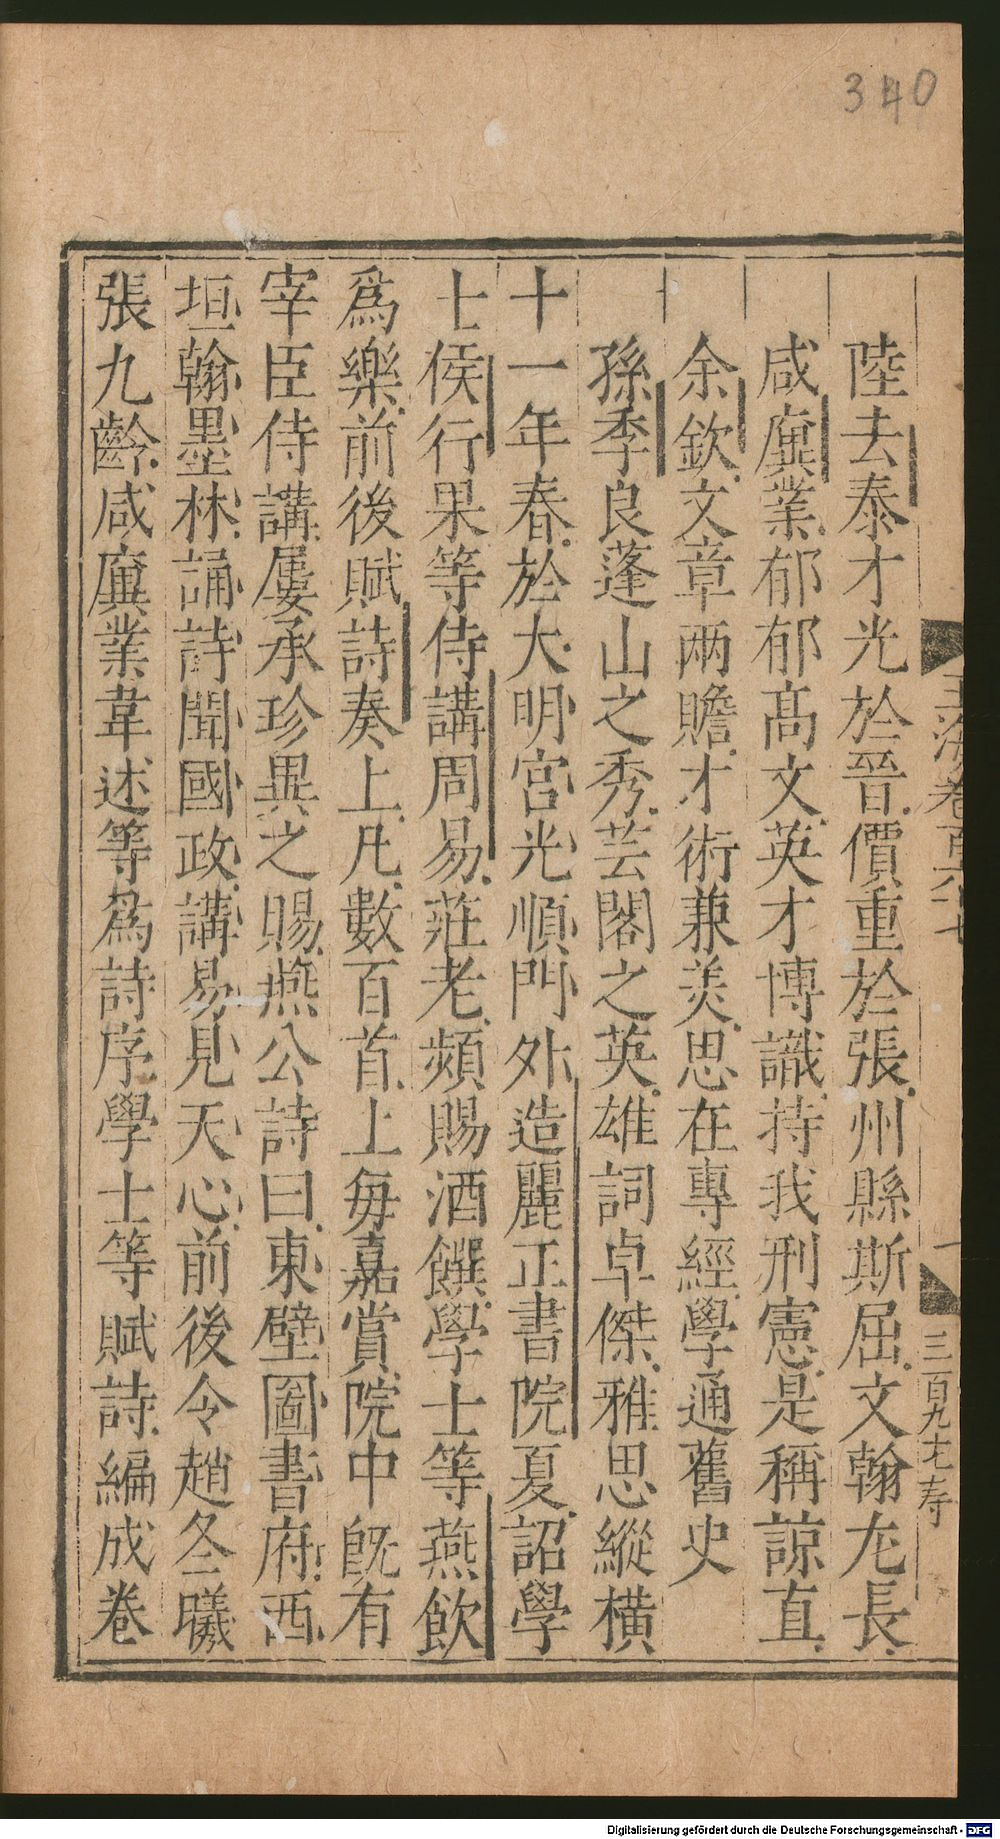 340
陸去泰才光於晉價重於張州縣斯屈文翰尢長
咸廙業郁郁高文英才博識持我刑憲是稱諒直
余欽文章兩贍才術兼美思在專經學通舊史
孫季良蓬山之秀芸閣之英雄詞卓傑雅思縱橫
十一年春於大明宮光順門外造麗正書院夏詔學
士侯行果等侍講周易莊老頻賜酒饌學士等燕飲
爲樂前後賦詩奏上凡數百首上每嘉賞院中旣有
宰臣侍講屢承珍異之賜燕公詩曰東壁圖書府西
垣翰墨林誦詩聞國政講易見天心前後令趙冬曦
張九齡咸廙業韋述等爲詩序學士等賦詩編成卷
玉海卷百六七
三百九十七寿
Digitalisierung gefördert durch die Deutsche Forschungsgemeinschaft - DFG